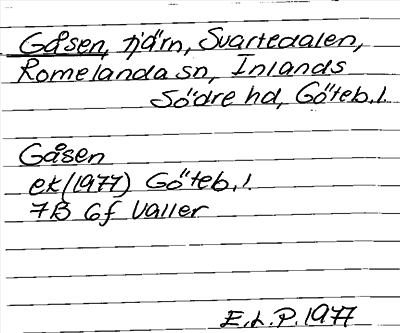 Gåsen, tjärn, Svartedalen,
Romelanda sn, Inlands
Södre hd, Göteb.l.
Gåsen
ek (1977) Göteb.l.
7B 6f Valler
E.L.P. 1977